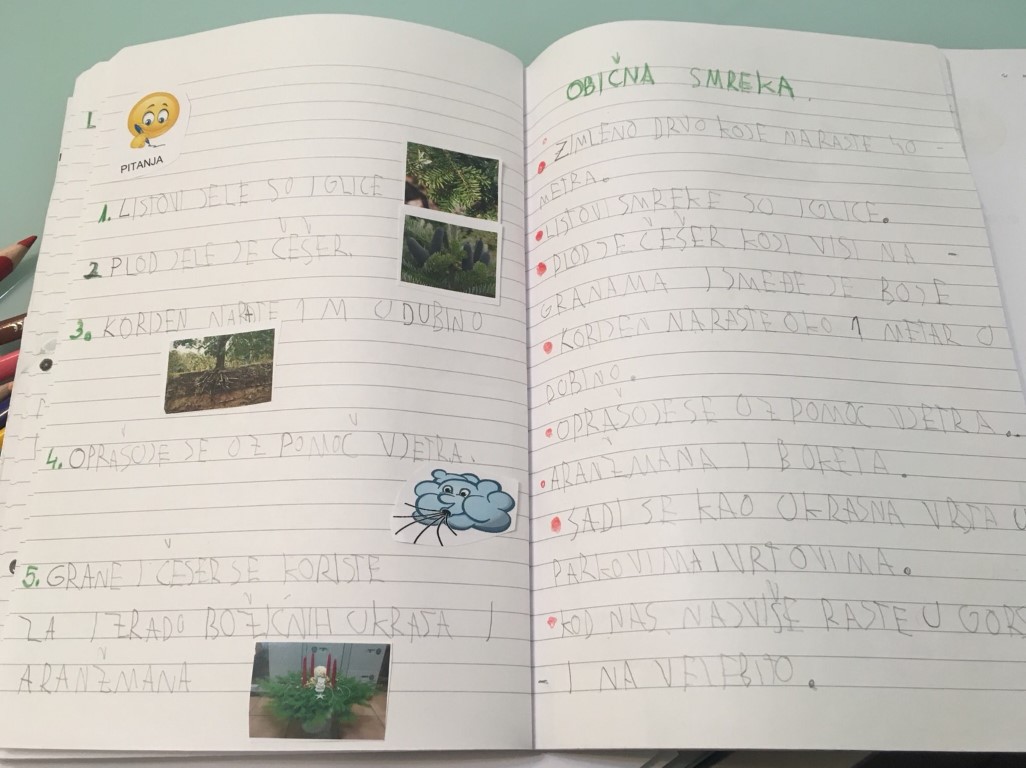 1.
PITANJA
1. LISTOVI JELE SU IGLICE
2 PLOD JELE JE ČEŠER.
3. KORIJEN NARASTE 1 M U DUBINU
4. OPRAŠUJE SE UZ POMOĆ VJETRA.
5. GRANE I ČEŠER SE KORISTE
ZA IZRADU BOŽIĆNIH UKRASA I
ARANŽMANA
OBIČNA SMREKA
ZIMLENO DRVO KOJE NARASTE 50 -
METRA.
LISTOVI SMREKE SU IGLICE.
PLOD JE ČEŠER KOJI VISI NA -
GRANAMA I SMEĐE JE BOJE
KORIJEN NARASTE OKO 1 METAR U
DUBINU.
OPRAŠUJE SE UZ POMOĆ VJETRA..
ARANŽMANA I BUKETA.
SADI SE KAO UKRASNA VRSTA U
PARKOVIMA I VRTOVIMA.
KOD NAS NAJVIŠE RASTE U GORS
- I NA VELEBITU.